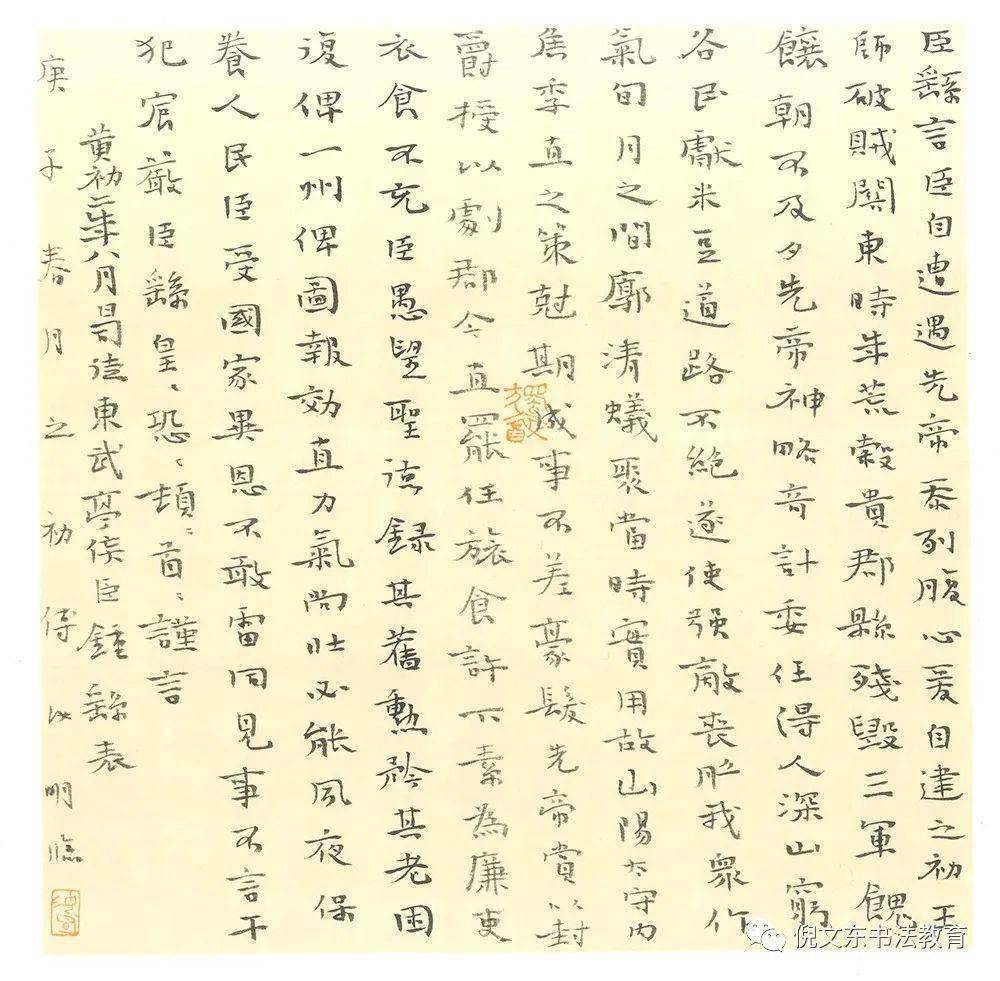 臣繇言臣自遭遇先帝忝列腹心爰自建之初王
師破賊關東時年荒穀貴郡縣殘毀三軍餽
饟朝不及夕先帝神略奇計委任得人深山窮
谷民獻米豆道路不絕遂使強敵喪膽我眾作
氣旬月之間廓清蟻聚當時實用故山陽太守內
焦季直之策尅期成事不差豪髮先帝賞以封
爵授以劇郡今直罷任旅食許下素為廉吏
衣食不充臣愚望聖德錄其舊勳矜其老困
復俾一州俾圖報効直力氣尚壯必能夙夜保
養人民臣受國家異恩不敢雷同見事不言干
犯宸嚴臣繇皇、恐、頓、首、謹言
黃初二年八月日司徒東武亭侯臣鍾繇表
庚子春月之初傅明臨
倪文东书法教育